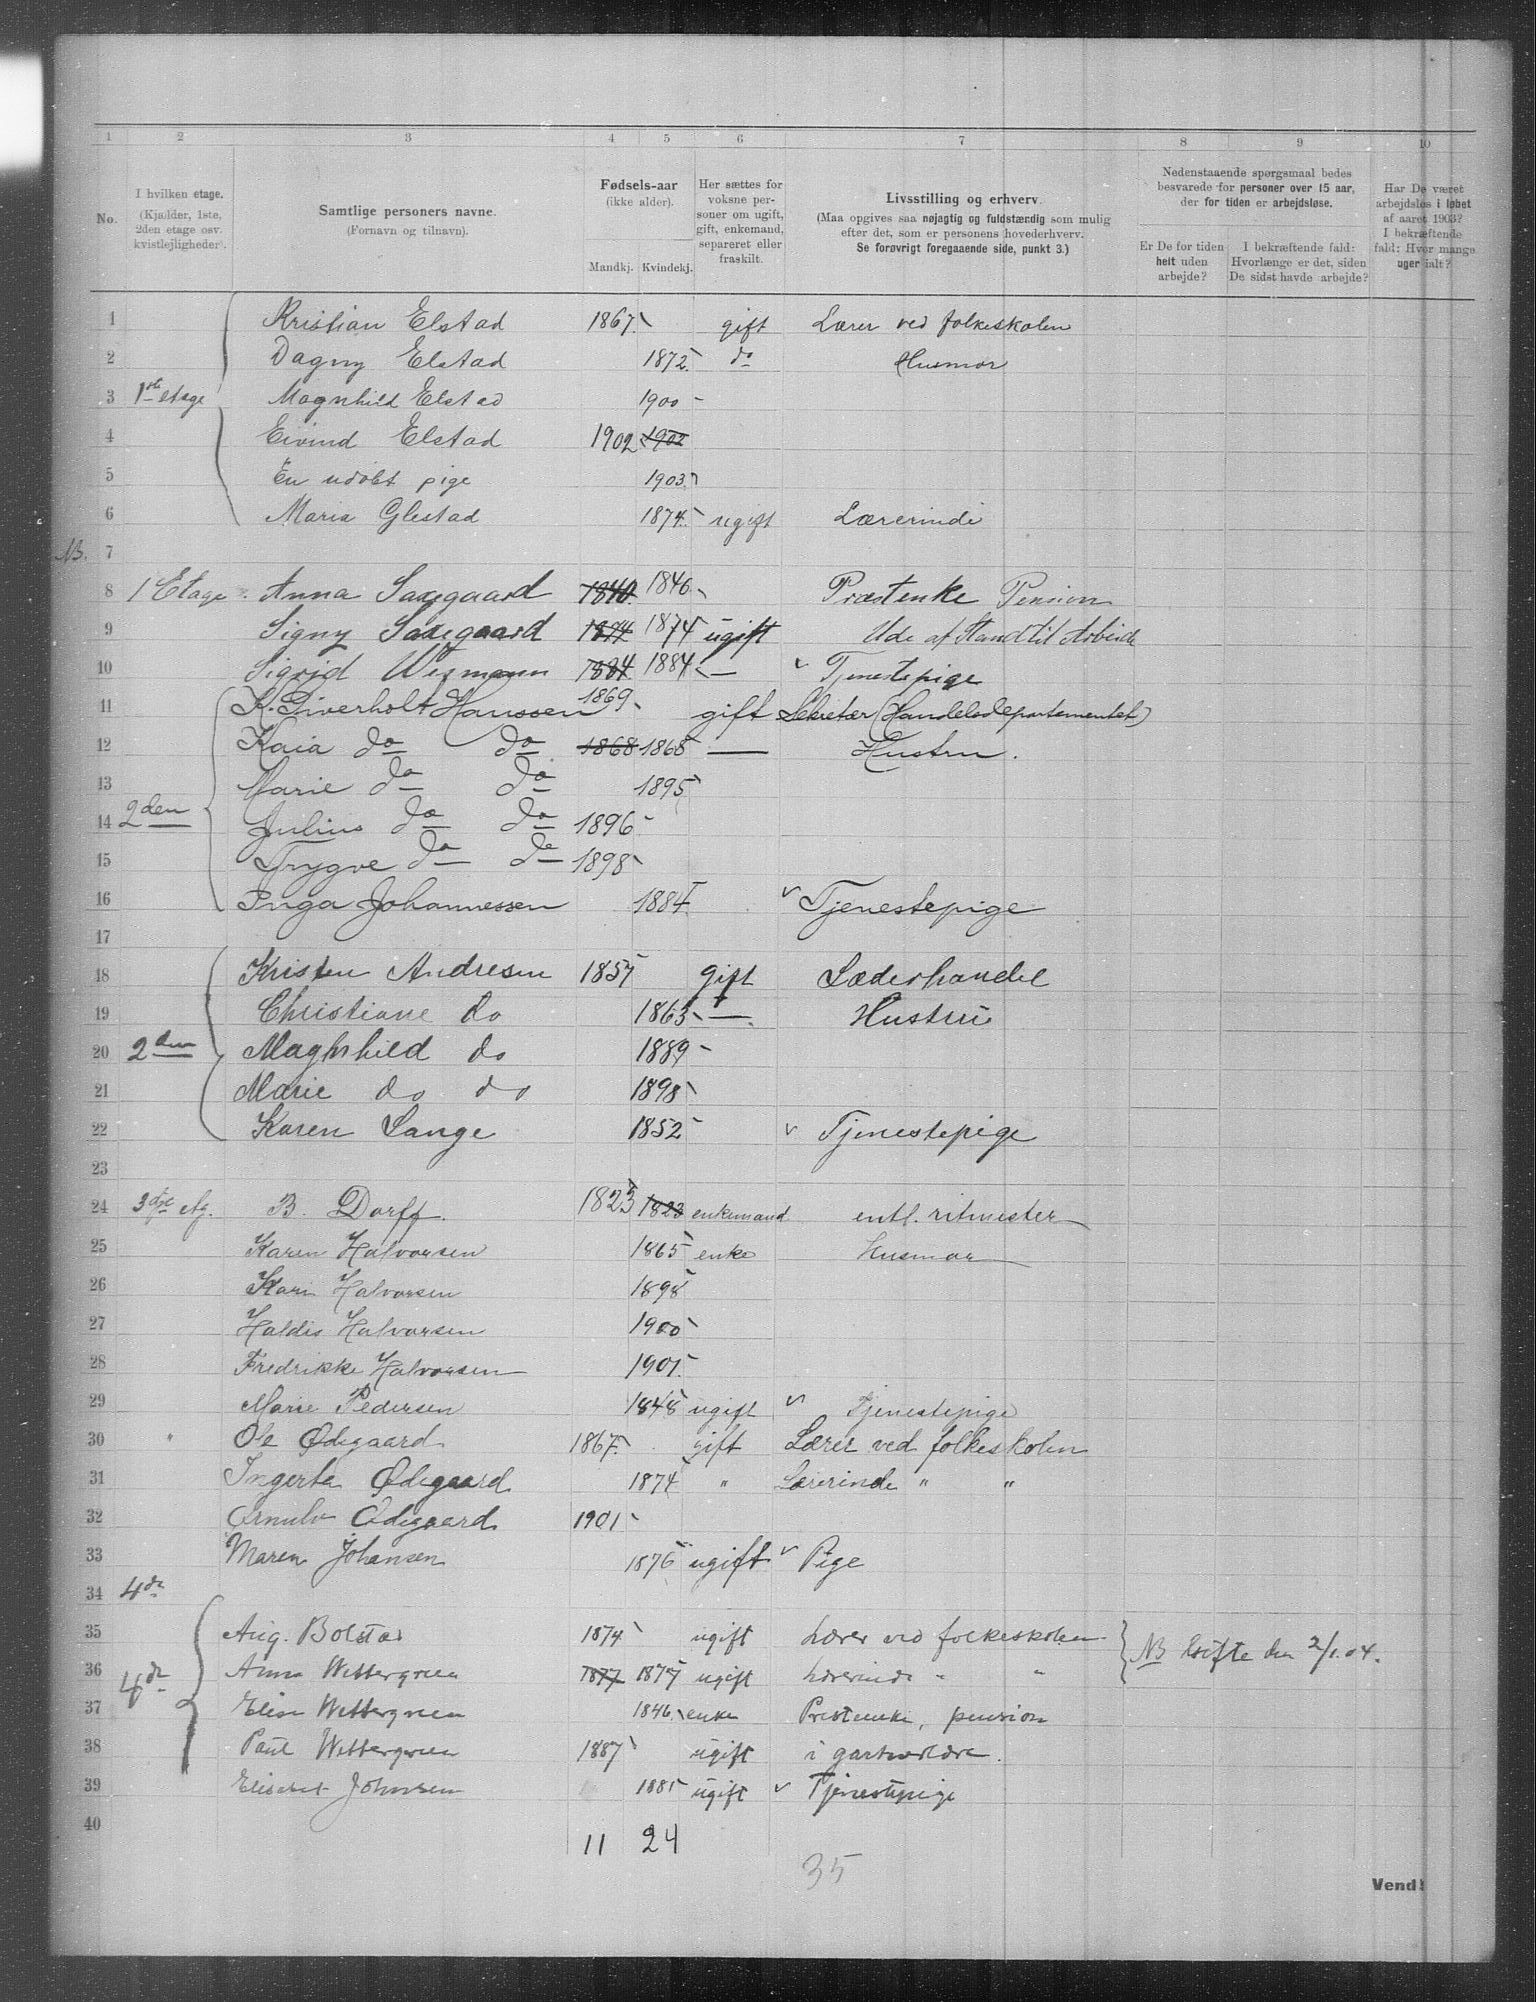 1 2 3 4 5 6 7 8 9 10
No.
I hvilken etage.
(Kjælder, 1ste, 2den etage osv. kvistlejligheder).
Samtlige personers navne.
(Fornavn og tilnavn).
Fødsels-aar
(ikke alder).
Mandkj. Kvindekj.
Her sættes for voksne personer om ugift, gift, enkemand, separeret eller fraskilt.
Livsstilling og erhverv.
(Maa opgives saa nøjagtig og fuldstændig som mulig efter det, som er personens hovederhverv.
Se forøvrigt foregaaende side, punkt 3.)
Nedenstaaende spørgsmaal bedes besvarede for personer over 15 aar, der for tiden er arbejdsløse.
Er De for tiden helt uden arbejde?
I bekræftende fald: Hvorlænge er det, siden De sidst havde arbejde?
Har De været arbejdsløs i løbet af aaret 1903? I bekræftende fald: Hvor mange uger ialt?
1 Kristian Elstad 1867 gift Lærer ved folkeskolen
2 Dagny Elstad 1872 do Husmor
3 1ste etage Magnhild Elstad 1900
4 Eivind Elstad 1902 1902
5 En udøbt pige 1903
6 Maria Glestad 1874 ugift Lærerinde
NB. 7
8 1 Etage Anna Saxegaard 1840 1846 Præstenke Pension
9 Signy Saxegaard 1874 1874 ugift Ude af Stand til Arbeide
10 Sigrid Wegmann 1884 1884 — Tjenestepige
11 K. Siverholt Hanssen 1869 gift Sekretær (Handelsdepartementet)
12 Kaia do do 1868 1868 — Hustru.
13 Marie do do 1895
14 2den Julius do do 1896
15 Trygve do do 1898
16 Inga Johannessen 1884 Tjenestepige
17
18 Kristen Andresen 1857 gift Læderhandel
19 Christiane do 1863 — Hustru
20 2den Maghhild do 1889
21 Marie do do 1898
22 Karen Lange 1852 Tjenestepige
23
24 3dje etg. B. Dorff. 1823 1823 enkemand entl. ritmester
25 Karen Halvorsen 1865 enke Husmor
26 Kari Halvorsen 1898
27 Haldis Halvorsen 1900
28 Fredrikke Halvorsen 1901
29 Marie Pedersen 1848 ugift Tjenestepige
30 " Ole Ødegaard 1867 gift Lærer ved folkeskolen
31 Ingerta Ødegaard 1874 " Lærerinde " "
32 Ørnulv Ødegaard 1901
33 Maren Johansen 1876 ugift Pige
34 4de
35 Aug. Bolstad 1874 ugift Lærer ved folkeskolen
36 4de Anna Wettergreen 1877 1877 ugift Lærerinde " " NB Gifte den 2/1.04.
37 Elise Wettergreen 1846 enke Prestenke, pension
38 Paul Wettergreen 1887 ugift i gartnerlære.
39 Elisabet Johnsen 1885 ugift Tjenestepige
40
11 24
35
Vend!